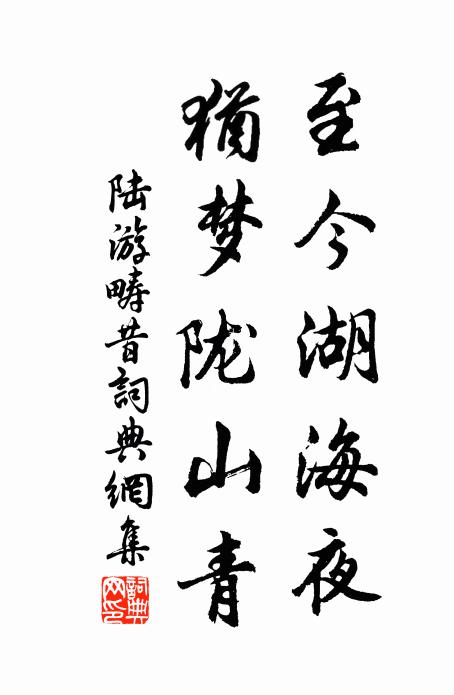 至今湖海夜
犹梦陇山青
陆游畴昔詞典網集
詞典网印